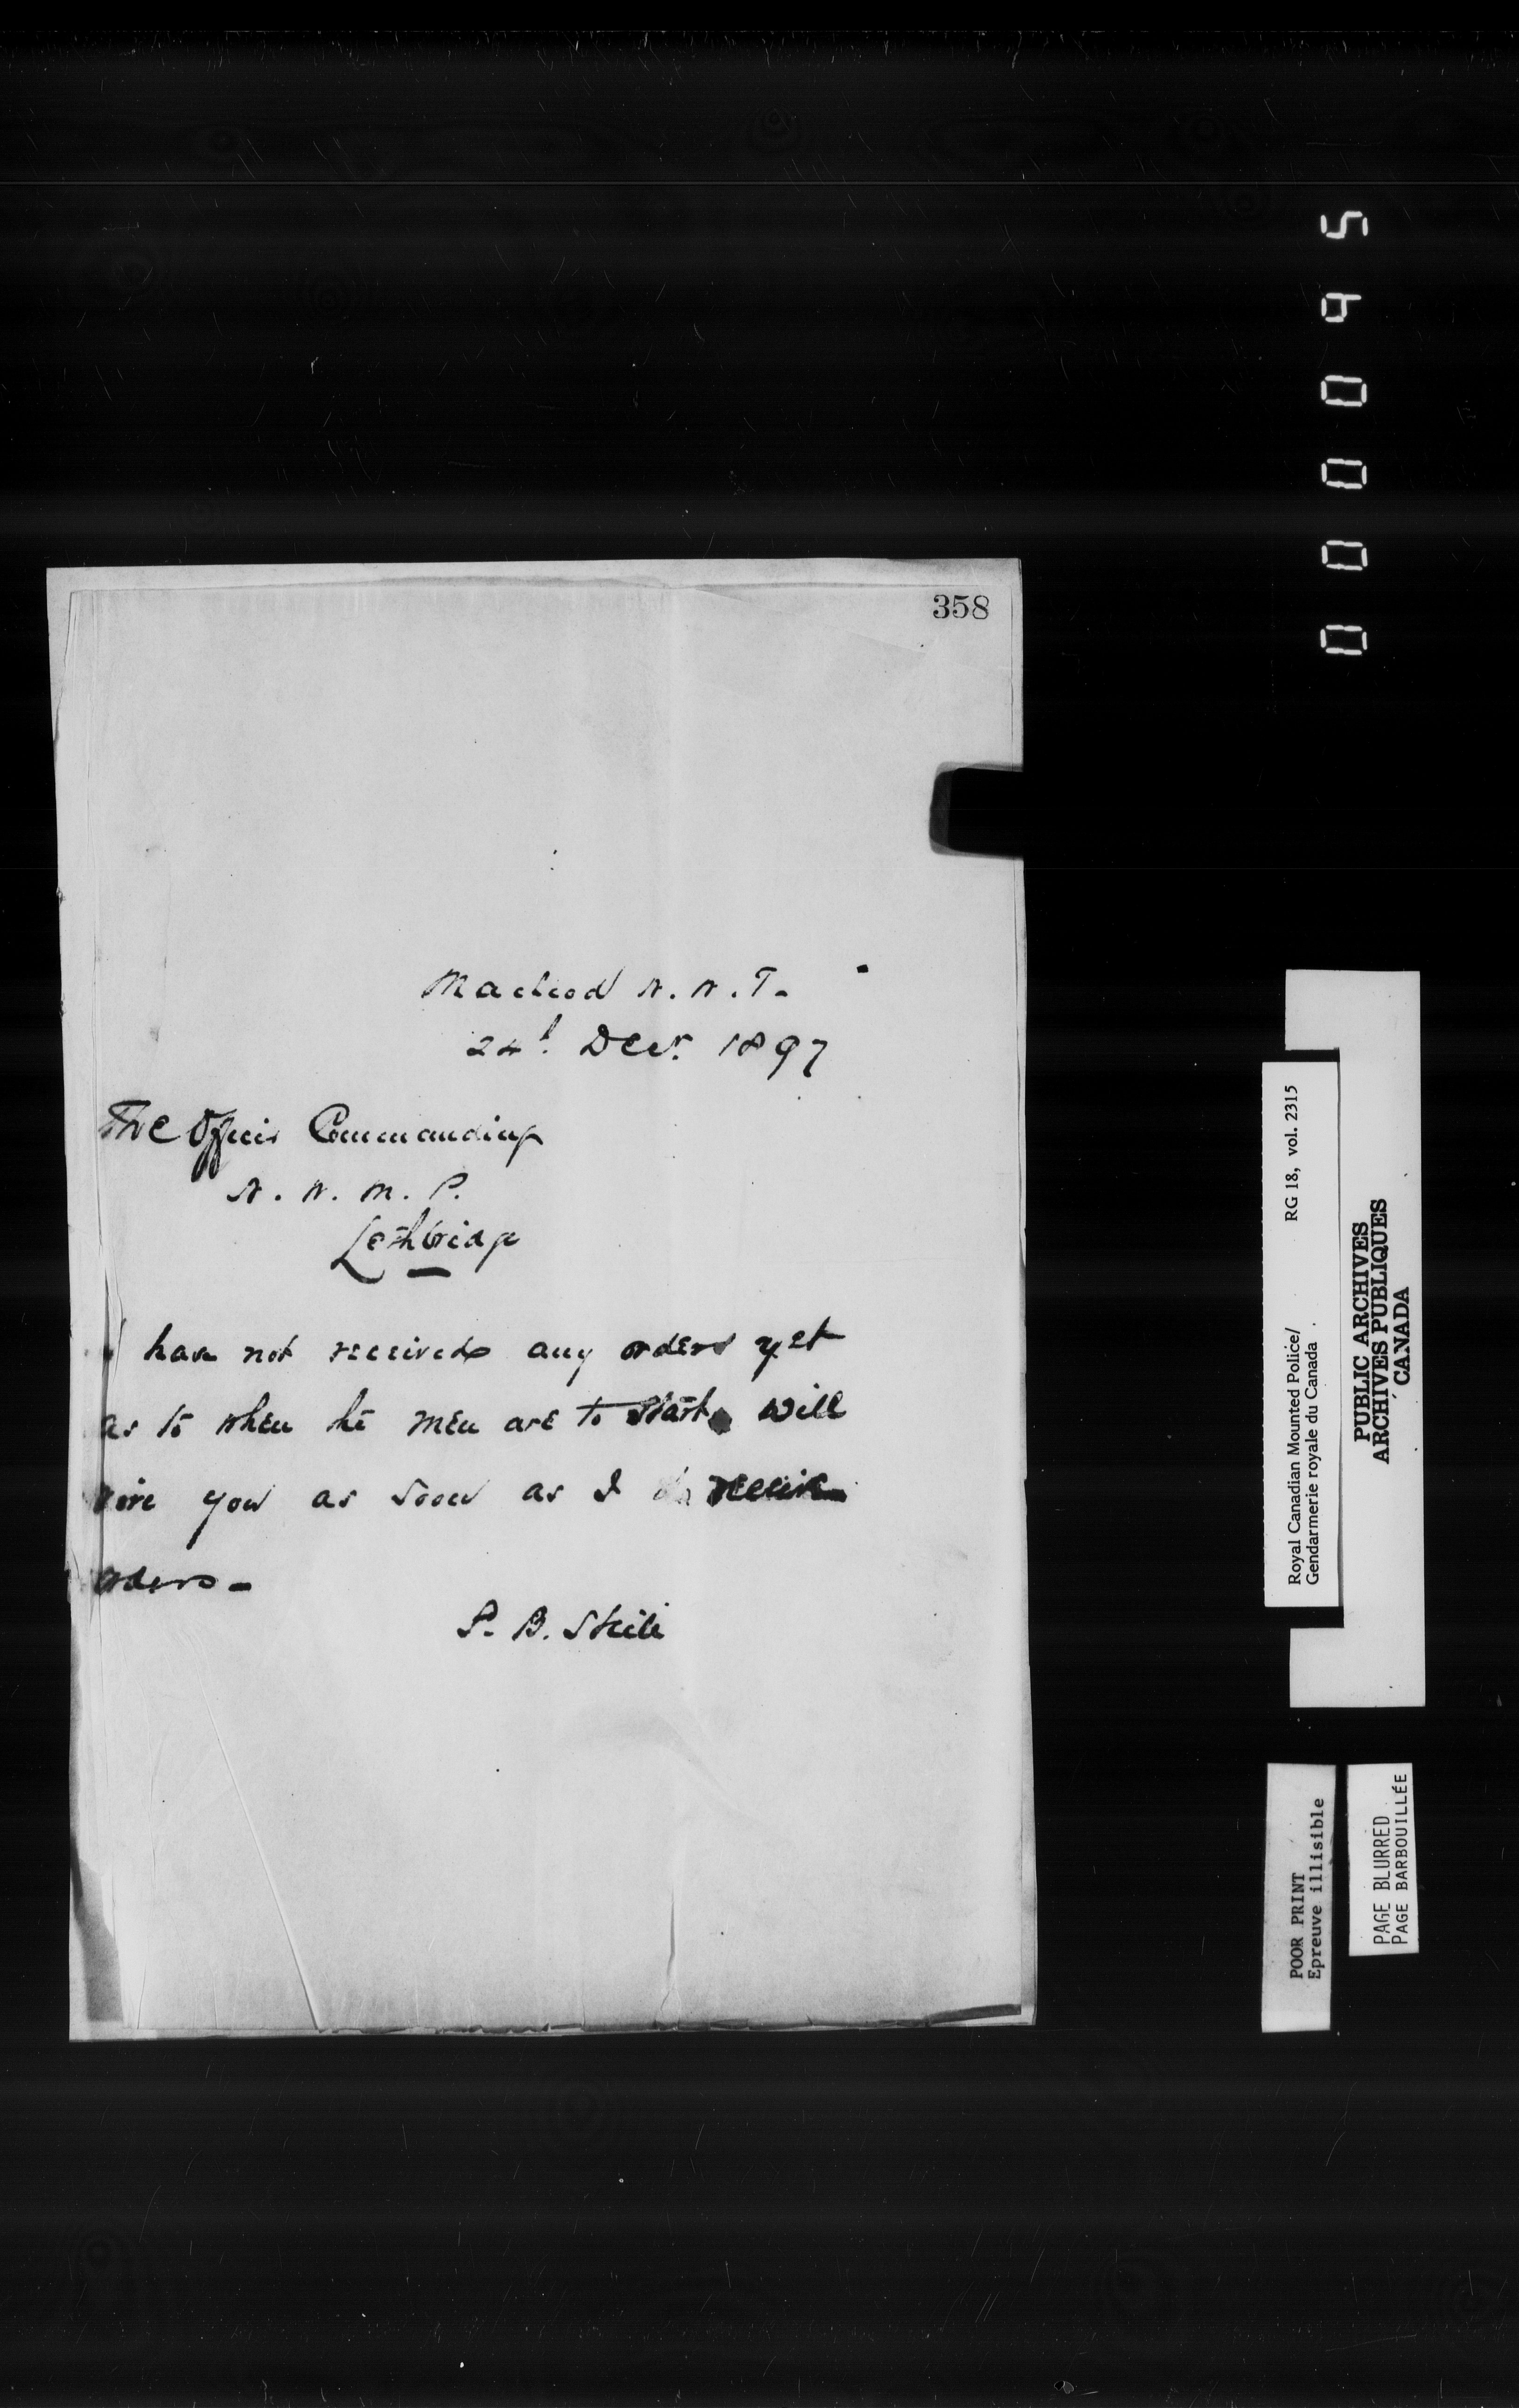 358
Macleod N. W. T.
24th Decr. 1897
The Officer Commanding
N. W. M. P.
Lethbridge
I have not received any orders yet
as to when the men are to start will
wire you as soon as I receive
orders -
S. B. Steele
000095
Royal Canadian Mounted Police/ RG 18, vol. 2315
Gendarmerie royale du Canada
PUBLIC ARCHIVES
ARCHIVES PUBLIQUES
CANADA
POOR PRINT
Epreuve illisible
PAGE BLURRED
PAGE BARBOUILLÉE